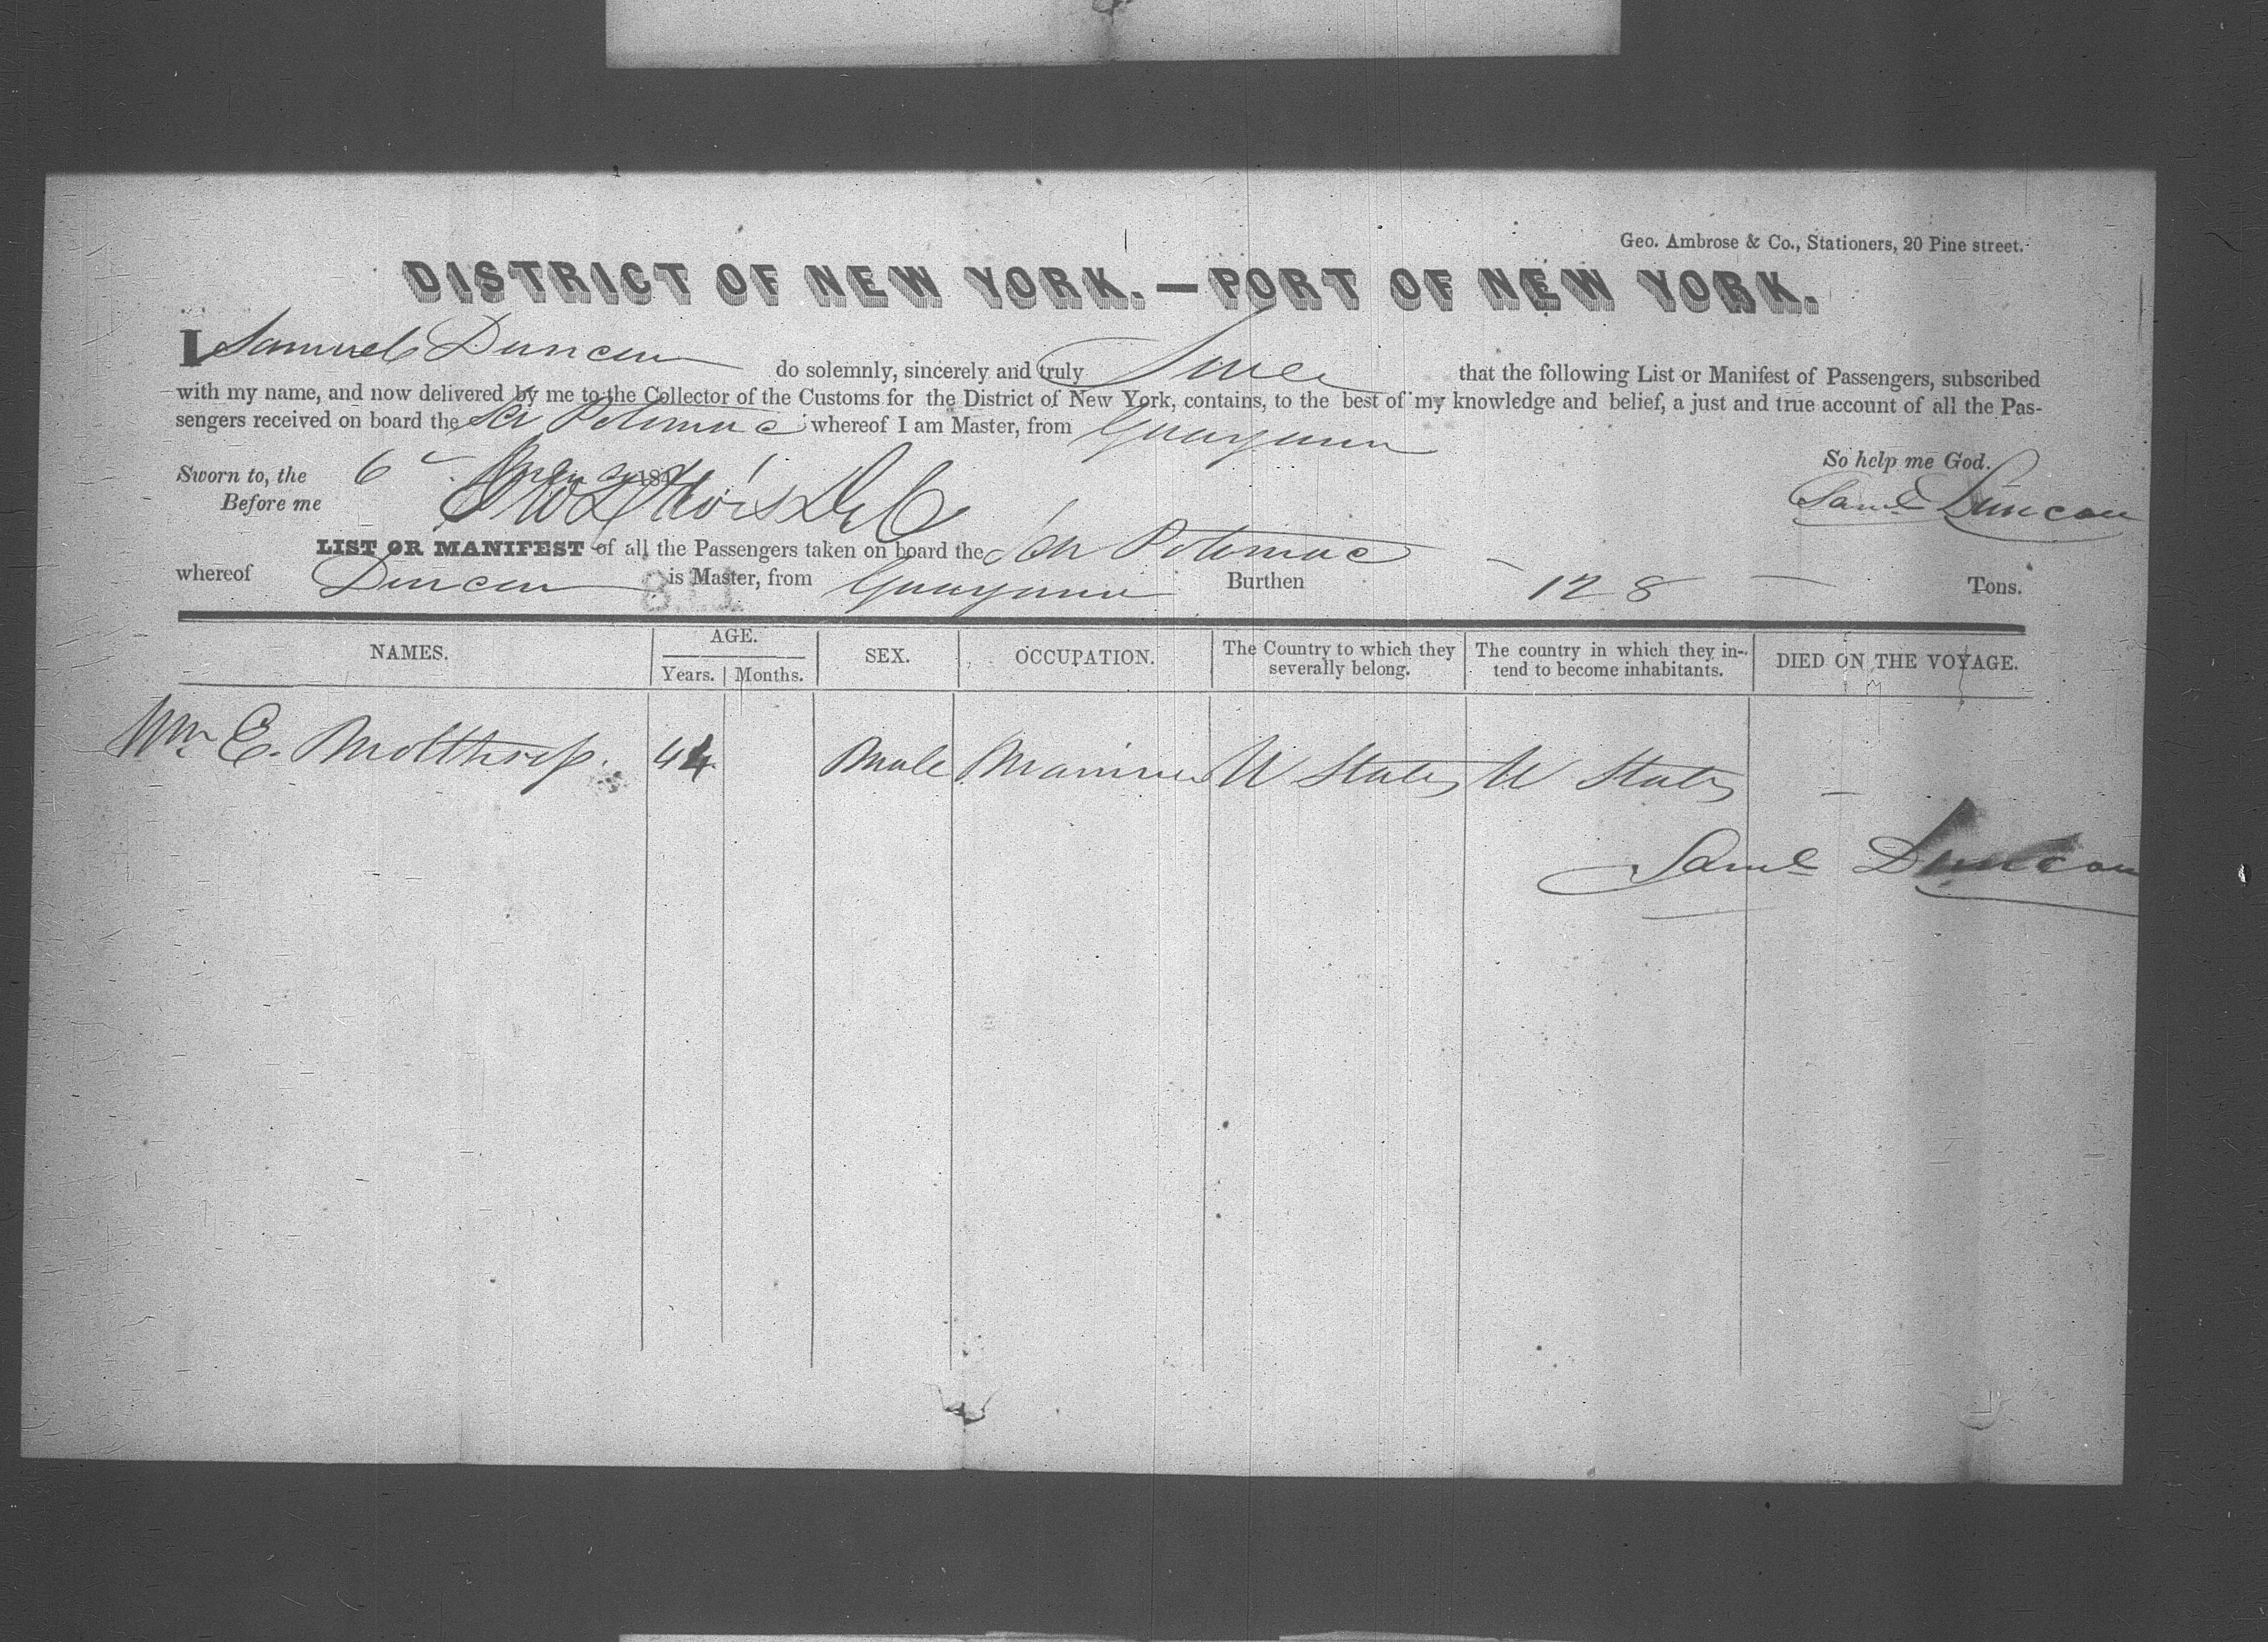 Geo. Ambrose & Co., Stationers, 20 Pine street.
DISTRICT OF NEW YORK.—PORT OF NEW YORK.
I Samuel Duncan do solemnly, sincerely and truly Swear that the following List or Manifest of Passengers, subscribed
with my name, and now delivered by me to the Collector of the Customs for the District of New York, contains, to the best of my knowledge and belief, a just and true account of all the Pas-
sengers received on board the Sch Potomac whereof I am Master, from Guayama
So help me God.
Sworn to, the 6 184
Before me
Saml Duncan
LIST OR MANIFEST of all the Passengers taken on board the Sch Potomac
whereof Duncan is Master, from Guayama Burthen 128 Tons.
NAMES. AGE. SEX. OCCUPATION. The Country to which they severally belong. The country in which they in-tend to become inhabitants. DIED ON THE VOYAGE.
Years. Months.
Wm E. Molthrop. 44 Male Mariner U States U States –
Saml Duncan